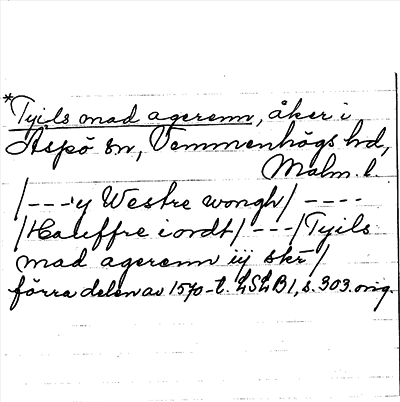 *Tyils mad agerenn, åker i
Aspö sn, Vemmenhögs hd,
Malm. l.
/---y Westre wongh/ ----
/Hauffre iordt/ ---/Tyils
mad agerenn iij skr/
förra delen av 1570-t. LSLB1, s. 303. orig.